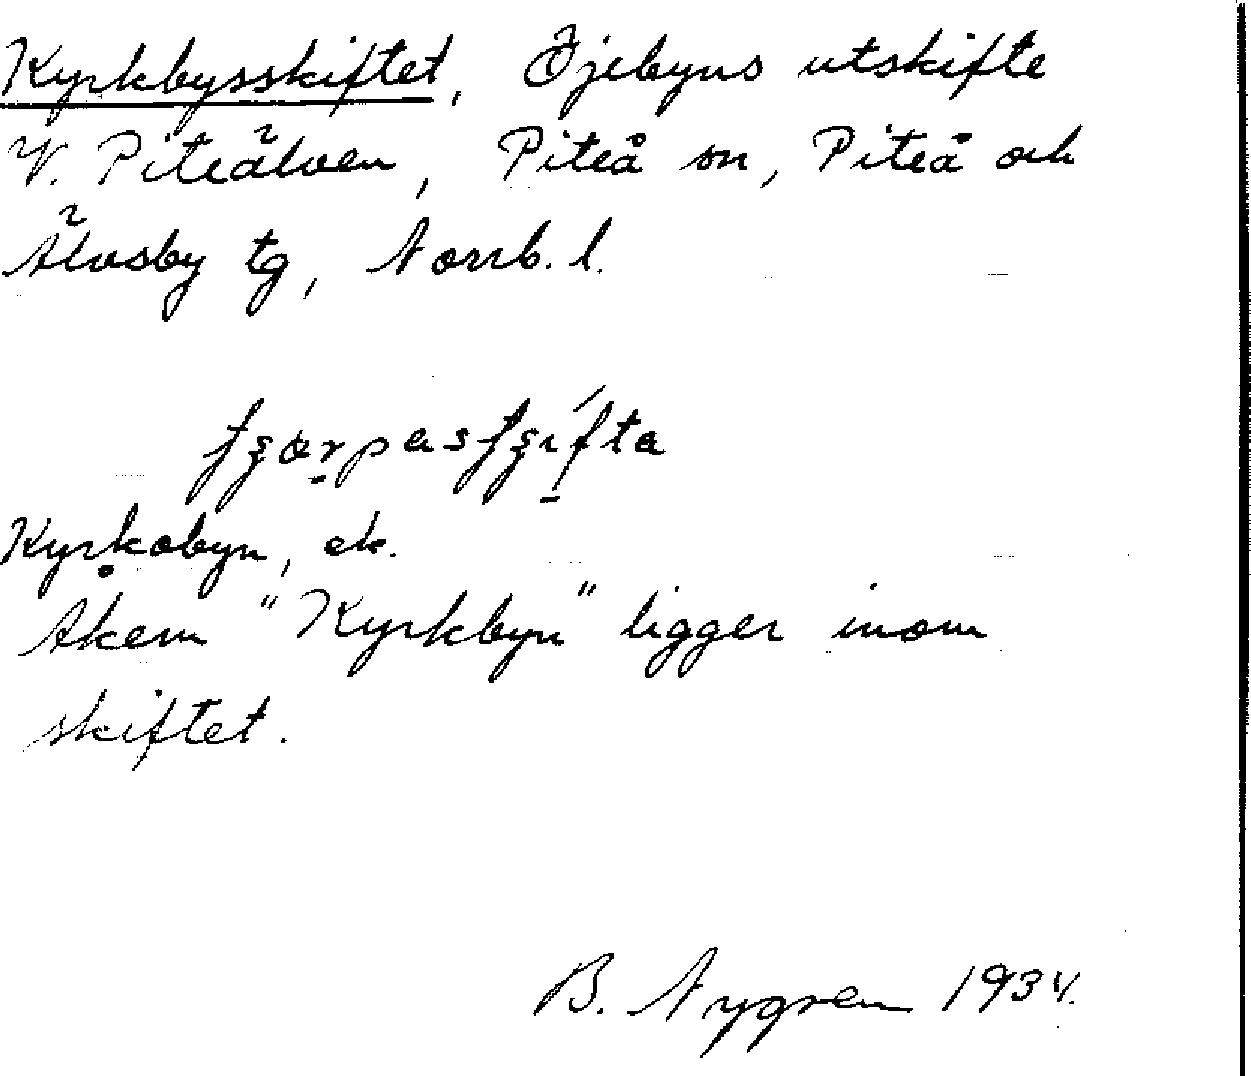 Kyrkbysskiftet, Öjebyns utskifte
V. Piteälven, Piteå sn, Piteå och
Älvsby tg, Norrb. l.
Kyrkobyn, ek.
Åkern "Kyrkbyn" ligger inom
skiftet.
B. Nygren 1934.